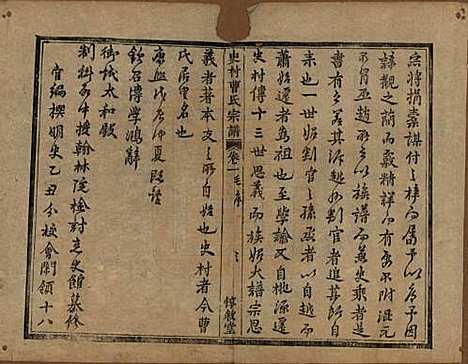 宗將捐棗謀付之而屬予以序予因
諦觀之簡而覈精詳而有要不附元
不冒巫趙然以族譜而兼史乘者是
書有焉其派判官者追其所自
来也一世始判官之孫丞者以自越遷
蕭始遷者為祖也至學諭又自桃源遷
史村傳十三世思義而族始大譜宗思
史村曹氏宗譜 卷一 毛序 惇敘堂
義者著本支之所自始也史村者今曹
氏居里名也
康熙戊辰仲夏既望
欽召博學鴻辭
御試太和殿
制科中授翰林院檢討充史館纂修
官編撰明史乙丑分校會闈領十八